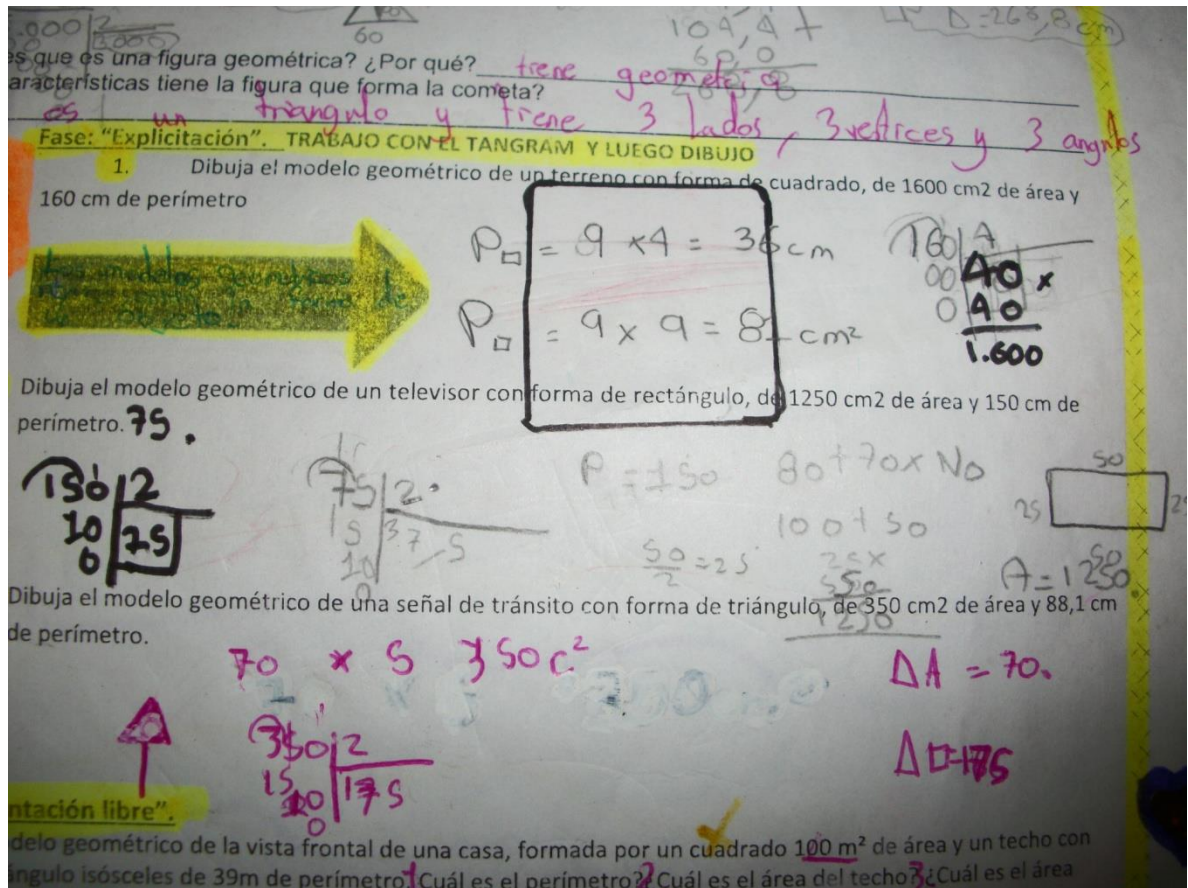 .000 2
3.000
60
104,4 +
60,0
268,8
Δ=268,8 cm
es que es una figura geométrica? ¿Por qué? tiene
aracterísticas tiene la figura que forma la cometa?
es un triangulo y tiene 3 lados, 3 vertices y 3 angulos
Fase: "Explicitación". TRABAJO CON EL TANGRAM Y LUEGO DIBUJO
1. Dibuja el modelo geométrico de un terreno con forma de cuadrado, de 1600 cm2 de área y
160 cm de perímetro
P□ = 9 x 4 = 36 cm
P□ = 9 x 9 = 81 cm²
160 4
00 40 x
0 40
1.600
Dibuja el modelo geométrico de un televisor con forma de rectángulo, de 1250 cm2 de área y 150 cm de
perímetro. 75.
150 2
10 75
0
75 2
15 37,5
10
0
P = 150
50/2 = 25
80 + 70 x No
100 + 50
25 x
50
1250
50
25 25
50
A = 1250
Dibuja el modelo geométrico de una señal de tránsito con forma de triángulo, de 350 cm2 de área y 88,1 cm
de perímetro.
70 x 5 350 c²
Δ A = 70.
350 2
15 175
10
0
Δ □=175
ntación libre".
delo geométrico de la vista frontal de una casa, formada por un cuadrado 100 m² de área y un techo con
ángulo isósceles de 39m de perímetro 1 ¿Cuál es el perímetro? 2 ¿Cuál es el área del techo? 3 ¿Cuál es el área